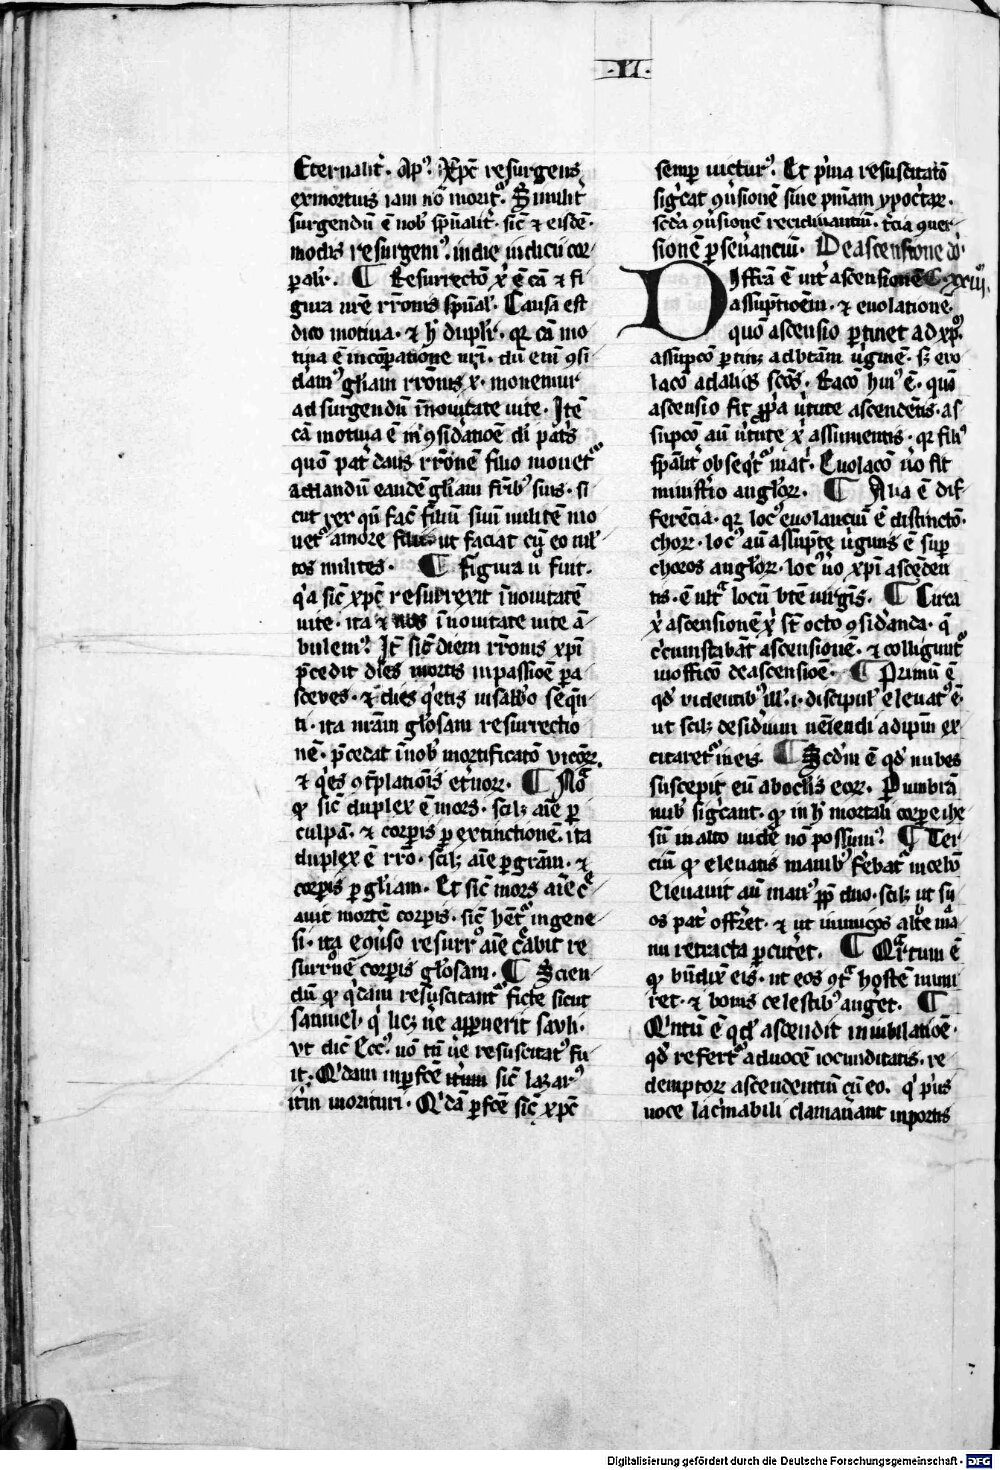 ·VI·
Eternalit̉. Ap̉. Xp̄c resurgens
ex mortuis iam nō morit᷑. Similit̉
surgendū ē nob̉ sp̄ualit̉. sic̄ & eisdē
modis resurgem᷒. in die iudicii cor
palr̉. ¶ Resurrectō x̉ ē cā & fi
gura nr̄e rr̄onis sp̄ual̉. Causa est
dico motiua. & h̉ duplr̉. qr cā mo
tiua ē incōparatione nr̄i. dū eni ꝯsi
dam᷒ gl̄iam rr̄onis x̉. monemur
ad surgendū ī nouitate uite. Itē
cā motiua ē in ꝯsid̉atiōe di pat̉s
quō pat̉ dans rr̄onē filio mouet᷑
ad dandū eandē gl̄iam fr̄ib᷒ suis. si
cut rex qn̄ fac̄ filiū suū militē mo
uet᷑ amore filii ut faciat cū eo mul
tos milites. ¶ Figura ů fuit.
q̉a sic̄ xp̄c resurrexit ī nouitatē
uite. ita & nos ī nouitate uite ā
bulem᷒. It̄ sic̄ diem rr̄onis xp̄i
p̄cedit dies mortis in passiōe pa
sceues. & dies q̉etis in sabb̄o seq̄n
ti. ita nr̄am gl̄osam resurrectio
nē. p̄cedat ī nob̉ mortificatō uicioꝝ.
& q̉es ꝯt̄platiōis et̉noꝝ. ¶ Nō
ꝙ sic̄ duplex ē mors. scilꝫ aīe ꝑ
culpā. & corpis ꝑ extinctionē. ita
duplex ē rr̄o. scilꝫ aīe ꝑ gr̄am. &
corpis ꝑ gl̄iam. Et sic̄ mors aīe c̉
auit mortē corpis. sic̄ h̄et᷑ in gene
si. ita econ̉so resurr̊ aīe c̄abit re
surr̄nē corpis gl̄osam. ¶ Scien
dū ꝙ q̉dam resuscitant᷑ ficte sicut
samuel. q̉ licꝫ ūe apparuerit sauli.
ut dic̄ Ecc᷒. nō tn̄ ūe resuscitat᷒ fu
it. Q̉dam inꝑfc̄e it̉um sic̄ lazar᷒
it̉m morituri. Q̉dā ꝑfc̄e sic̄ xp̄c
semꝑ uictur᷒. Et p̉ma resuscitatō
sig̉cat ꝯủsionē siue pn̄iam ypoc̉taꝝ.
sc̄da ꝯủsionē recidiuantiū. t̉cia ꝯuer
sionē ꝑseủanciū. De ascensione dō.
C. xxiii.
Differ̄a ē int̉ ascensionē
assūptioēm. & euolatione.
quō ascensio ꝑtinet ad xp̄.
assūpcō ꝑtinꝫ ad btām ủginē. sꝫ euo
lacō ad alios sc̄os. Racō hui᷒ ē. quō
ascensio fit ꝓp̉a ủtute ascendētis. as
sūpcō aū ủtute x̉ assumentis. qr fili᷒
sp̄alit̉ obseq̉t᷑ mat̉. Euolacō ůo fit
ministerio angl̉oꝝ. ¶ Alia ē dif
ferēcia. qr loc᷒ euolanciū ē distinctō.
choꝝ. loc᷒ aū assūpte ủginis ē sup
choros angl̉oꝝ. loc᷒ ůo xp̄i ascēden
tis. ē ult̉ locū btē uirgīs. ¶ Circa
x̉ ascensionē s̄t octo ꝯsid̉anda. q̄
c̉cumstabāt ascensionē. & colligunt᷑
in officō de ascensiōe. ¶ Primū ē
qd̉ uidentib᷒ ill̉. i. discipul̉ eleuat᷒ ē.
ut scilꝫ desid̉ium ueniendi ad ip̄m ex
citaret᷑ in eis. ¶ Scd̄m ē qd̉ nubes
suscepit eū ab oclis eoꝝ. P umbrā
nub̉ sig̉cant. ꝙ in h̉ mortali corpe ihc
sū in alto uide nō possum᷒. ¶ Ter
ciū ꝙ eleuatis manib᷒ fēbat᷑ in celū
Eleuauit aū man᷒ ꝓp̄ duo. scilꝫ ut su
os pat̉ offr̉et. & ut inimicos alte ma
nu retracta ꝑcut̉et. ¶ Q̉rtum ē
ꝙ bn̄dix̄ eis. ut eos ꝯt̉ hostē muni
ret. & bonis celestib᷒ auḡet. ¶
Q̉ntū ē qd̉ ascendit in iubilatiōe.
qd̉ refert᷑ ad uocē iocunditatis. re
demptoꝝ ascendentiū cū eo. q̉ p̉us
uoce lac̉mabili clamaủant in portis
Digitalisierung gefördert durch die Deutsche Forschungsgemeinschaft - DFG